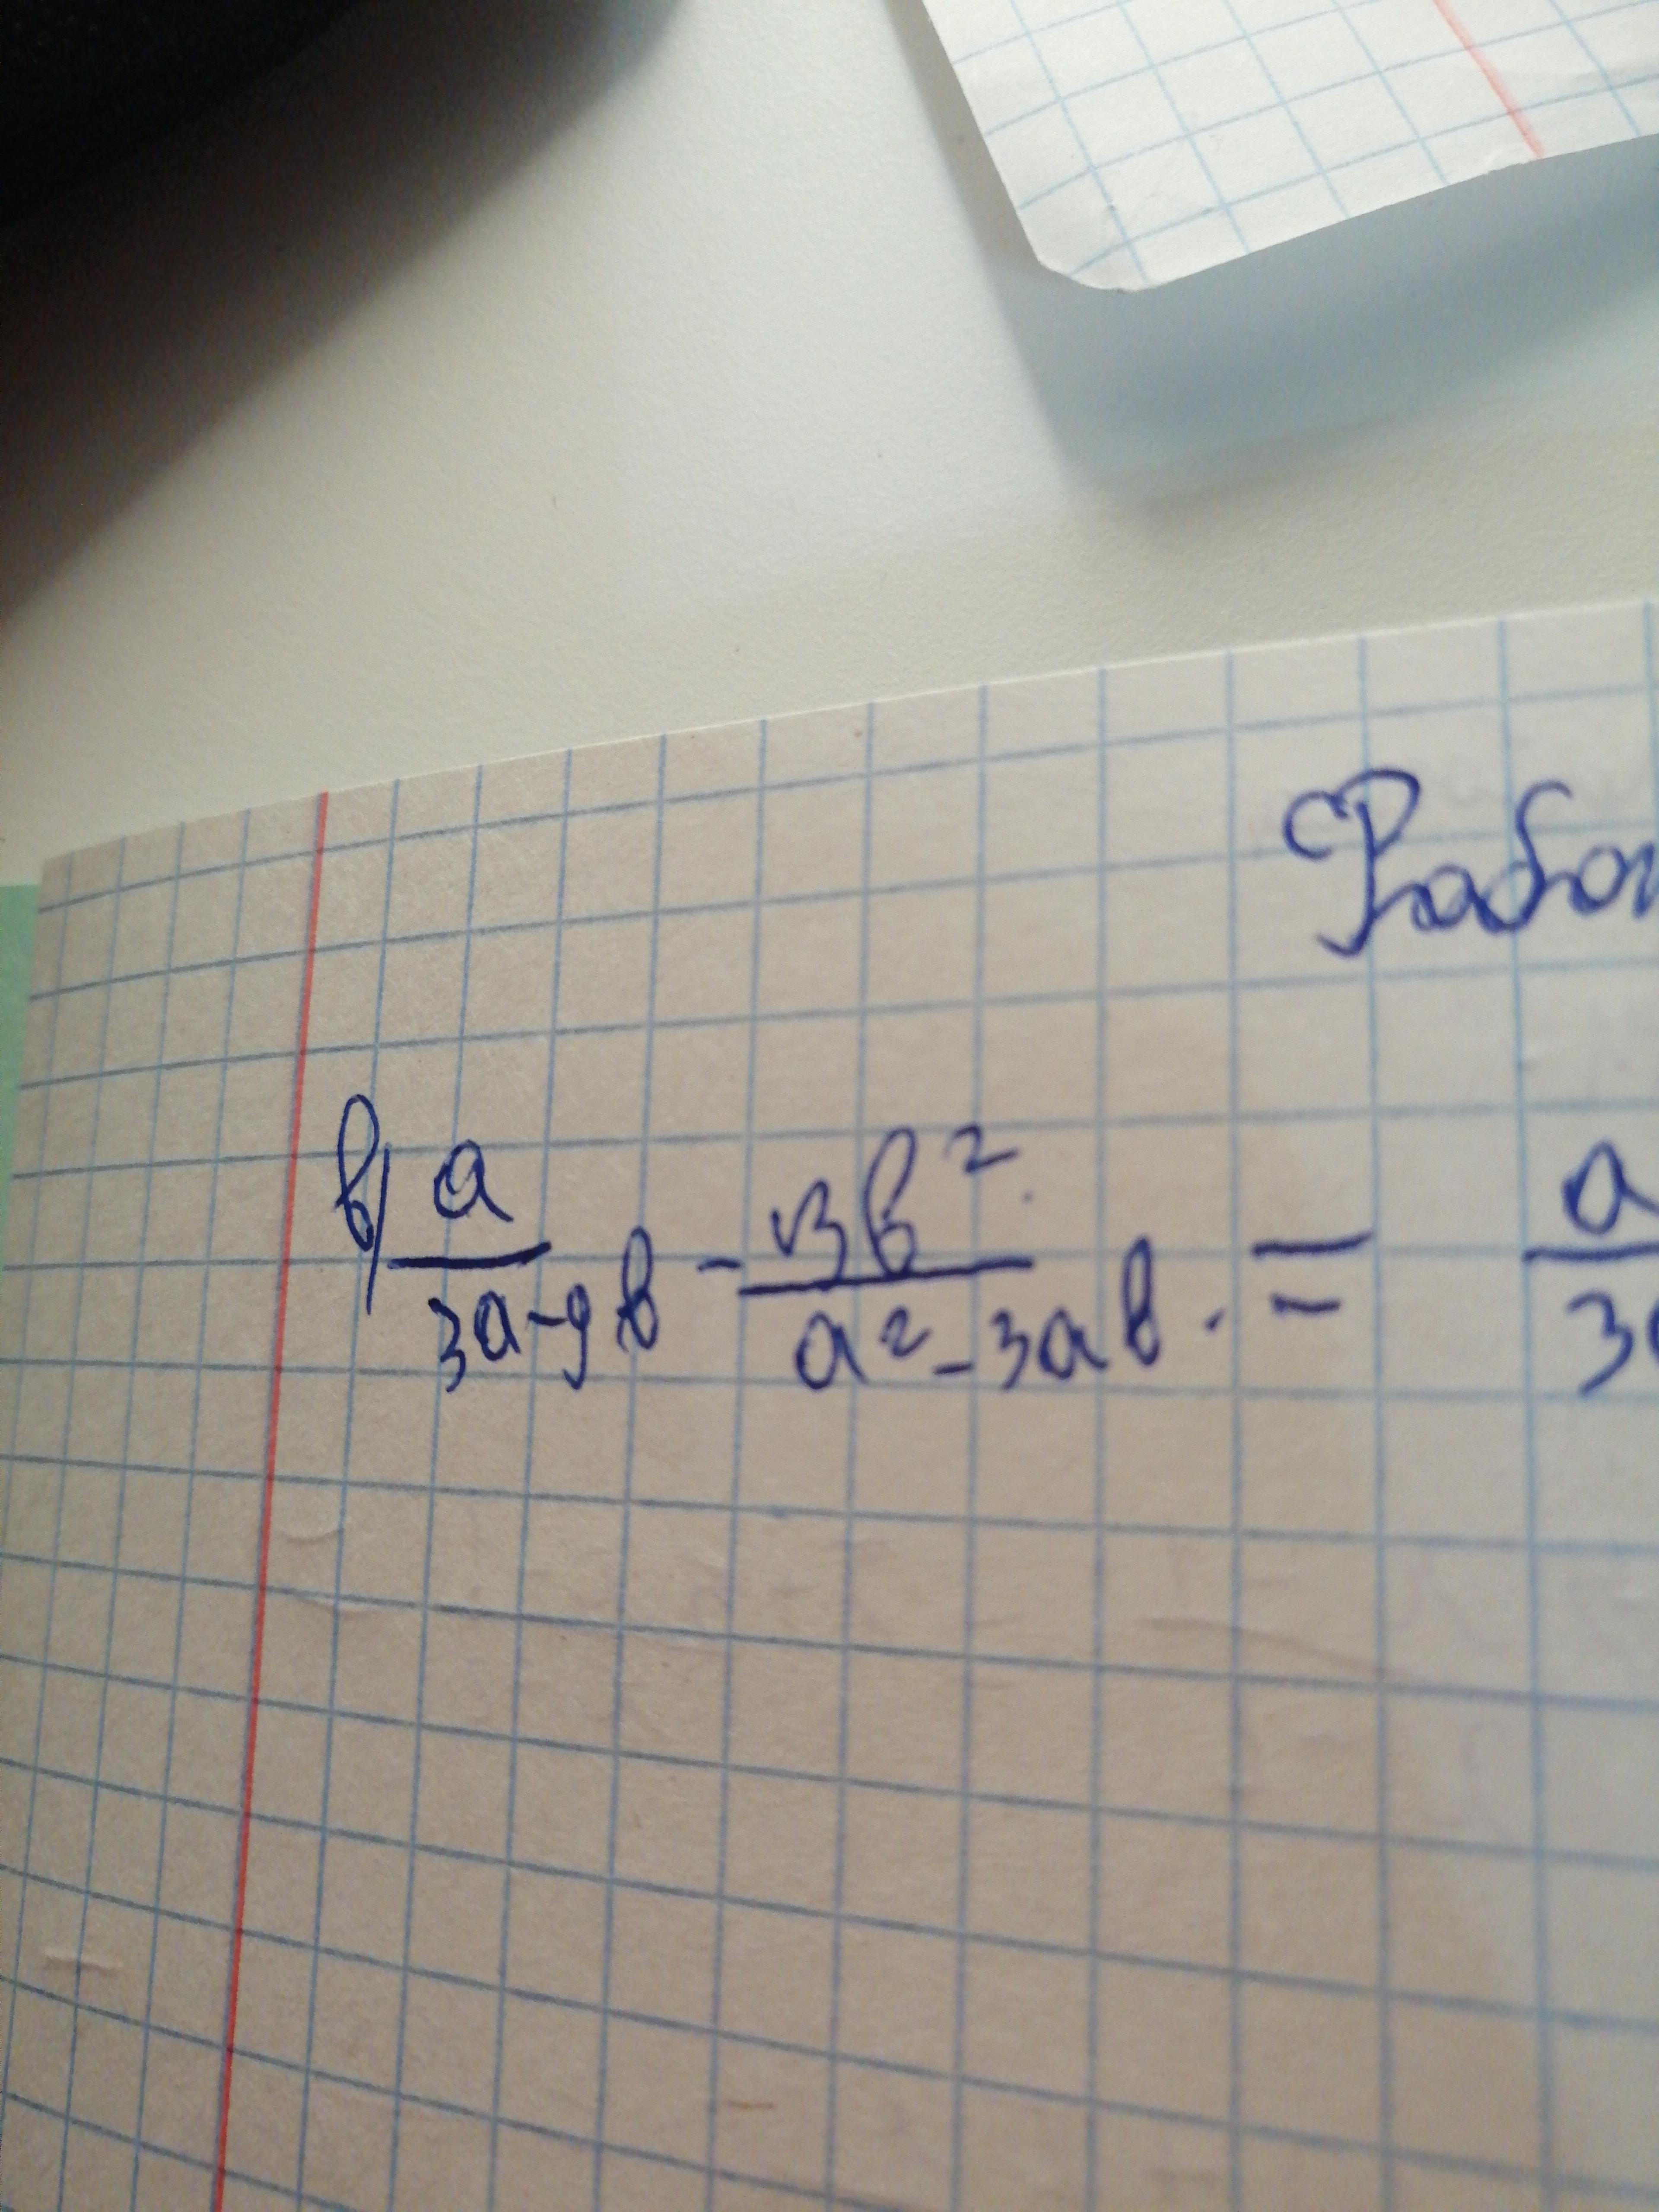 в) a/(3a-9в) - 3в²/(a²-3aв) = a/3